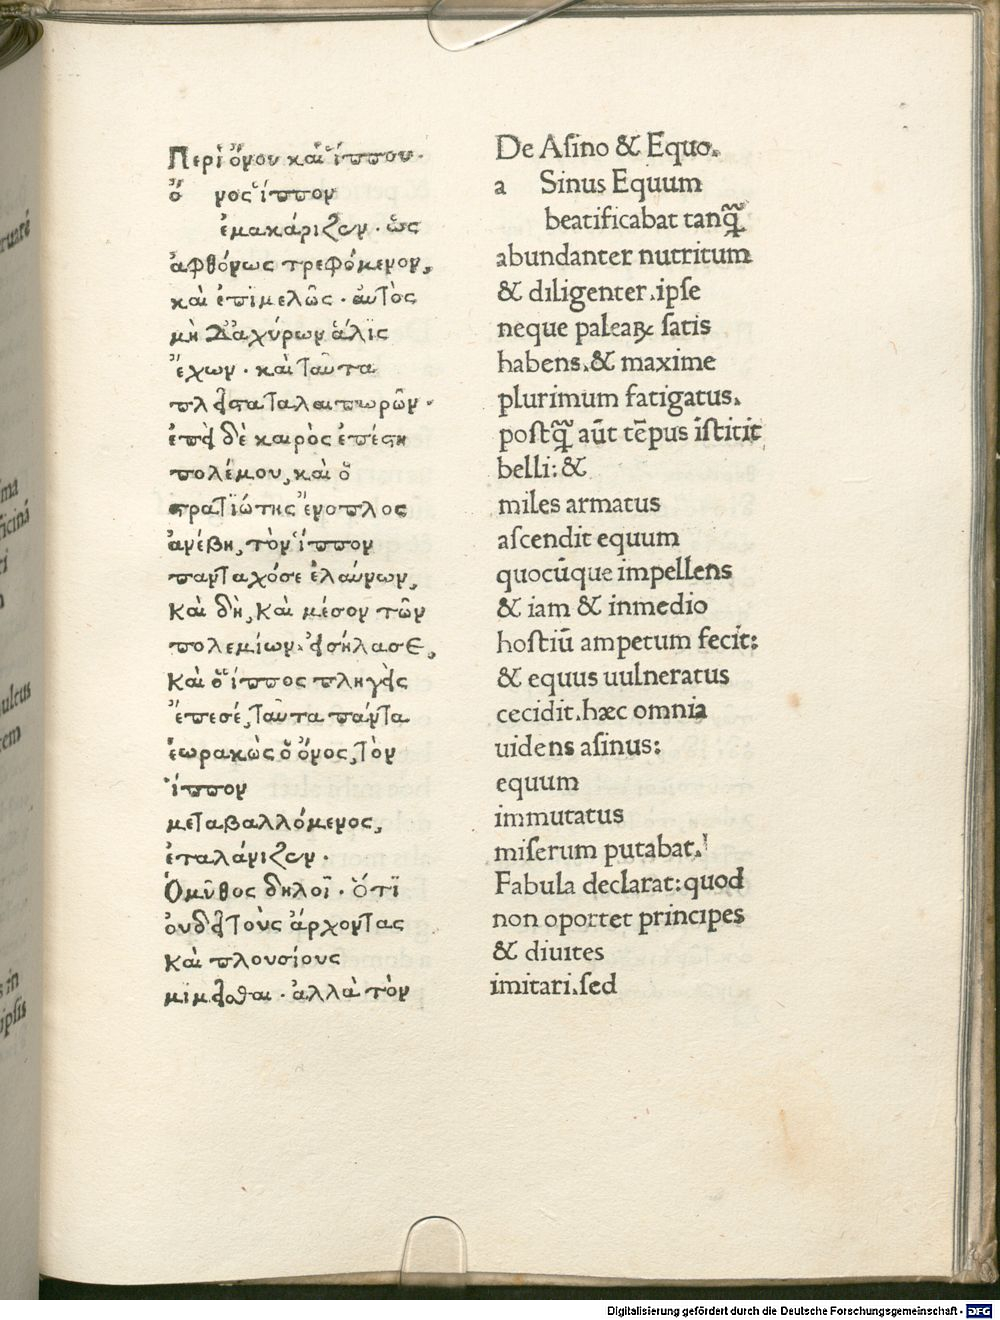 Περὶ ὄνου καὶ ἵππου.
ὄ νος ἵππον
ἐμακάριζεν. ὡς
ἀφθόνως τρεφόμενον,
καὶ ἐπιμελῶς. ἀυτὸς
μὴ δ᾽ἀχύρων ἁλῒς
ἔχων. καὶ ταῦτα
πλεῖστα ταλαιπωρῶν.
ἐπεὶ δὲ καιρὸς ἐπέστη
πολέμου, καὶ ὅ
στρατϊώτης ἔνοπλος
ἀνέβη, τὸν ἵππον
πανταχόσε ἐλαύνων,
Καὶ δὴ, Καὶ μέσον τῶν
πολεμίων. εἰσήλασε,
Καὶ ὅ ἵππος πληγεὶς
ἔπεσέ, ταῦτα πάντα
ἑωρακὼς ὅ ὄνος, τὸν
ἵππον
μεταβαλλόμενος,
ἐταλάνιζεν.
Ὁ μῦθος δηλοῖ. ὅτϊ
ὀυ δεῖ τοὺς ἄρχοντας
Καὶ πλουσίους
μιμεῖσθαι. ἀλλὰ τὸν
De Aſino & Equo.
a Sinus Equum
beatificabat tanq̃
abundanter nutritum
& diligenter. ipſe
neque paleaꝝ ſatis
habens. & maxime
plurimum fatigatus.
poſtq̃ aūt tēpus īſtitit
belli: &
miles armatus
aſcendit equum
quocūque impellens
& iam & inmedio
hoſtiū ampetum fecit:
& equus uulneratus
cecidit. hæc omnia
uidens aſinus:
equum
immutatus
miſerum putabat.
Fabula declarat: quod
non oportet principes
& diuites
imitari. ſed
Digitalisierung gefördert durch die Deutsche Forschungsgemeinschaft - DFG